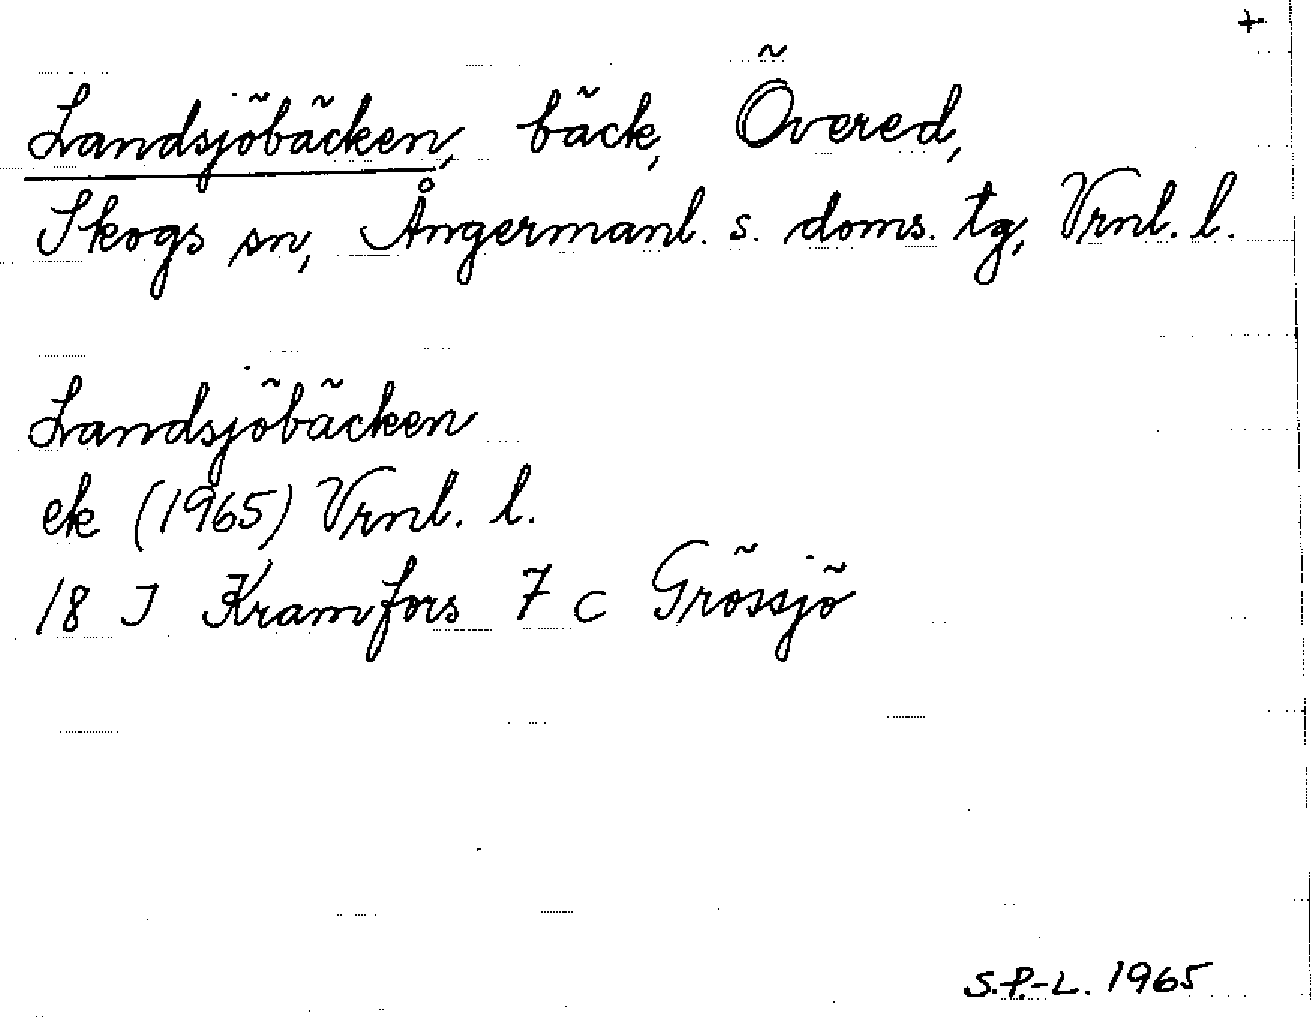 +
Landsjöbäcken, bäck, Övered,
Skogs sn, Ångermanl. s. doms. tg, Vrnl. l.
Landsjöbäcken
ek (1965) Vrnl. l.
18 I Kramfors 7 c Grössjö
S.P.-L. 1965